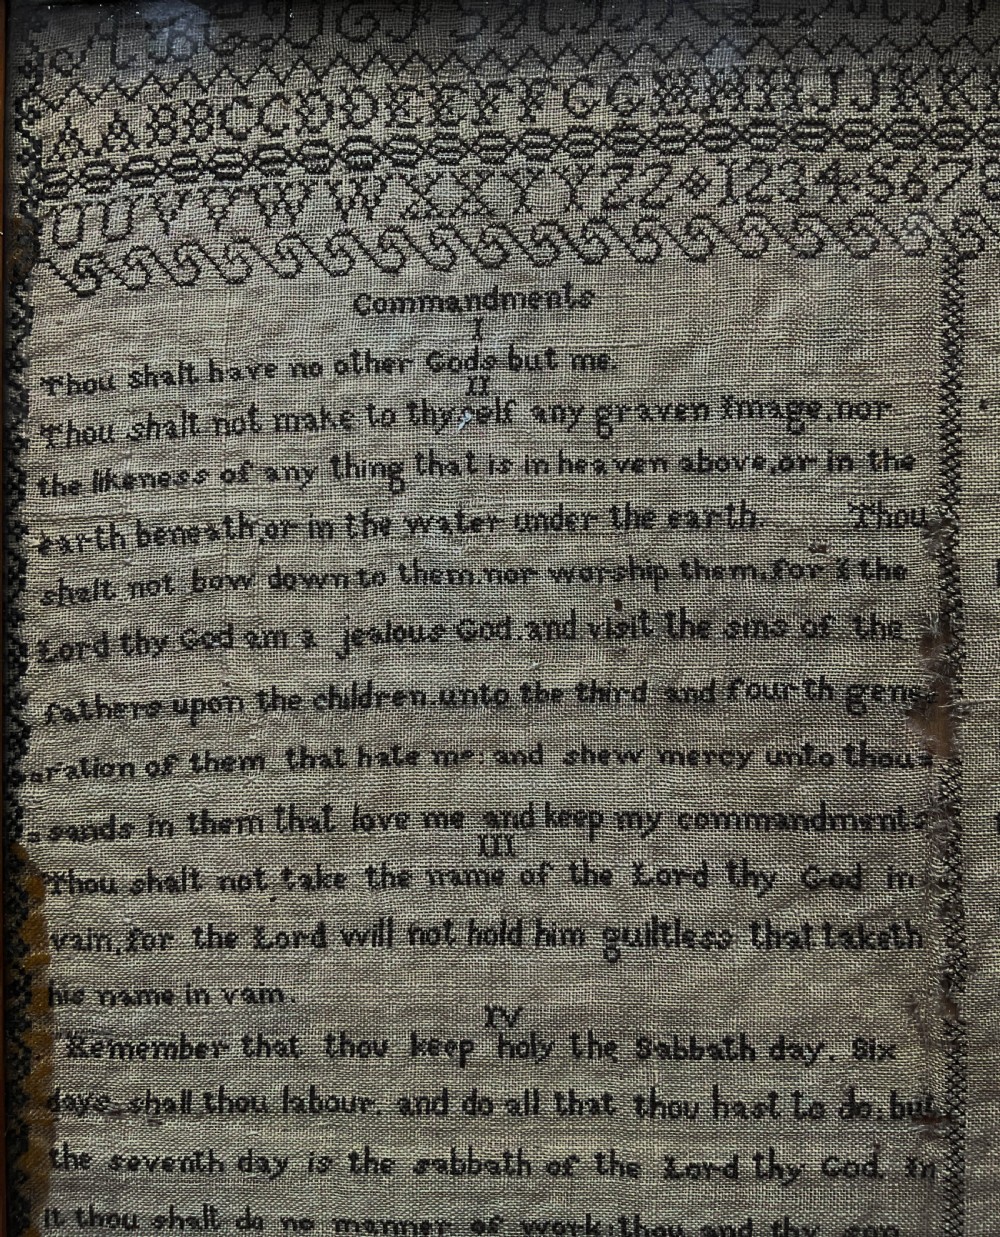 AABBCCDDEEFFGGHHIIJJKK
UUVVWWXXYYZZ 12345678
Commandments
I
Thou shalt have no other Gods but me.
II
Thou shalt not make to thyself any graven Image,nor
the likeness of any thing that is in heaven above,or in the
earth beneath,or in the water under the earth. Thou
shalt not bow down to them,nor worship them,for I the
Lord thy God am a jealous God,and visit the sins of the
fathers upon the children,unto the third and fourth gene-
-eration of them that hate me: and shew mercy unto thou=
=sands in them that love me and keep my commandments
III
Thou shalt not take the name of the Lord thy God in
vain,for the Lord will not hold him guiltless that taketh
his name in vain.
IV
Remember that thou keep holy the Sabbath day. Six
days shall thou labour, and do all that thou hast to do,but
the seventh day is the sabbath of the Lord thy God. In
it thou shalt do no manner of work,thou and thy son